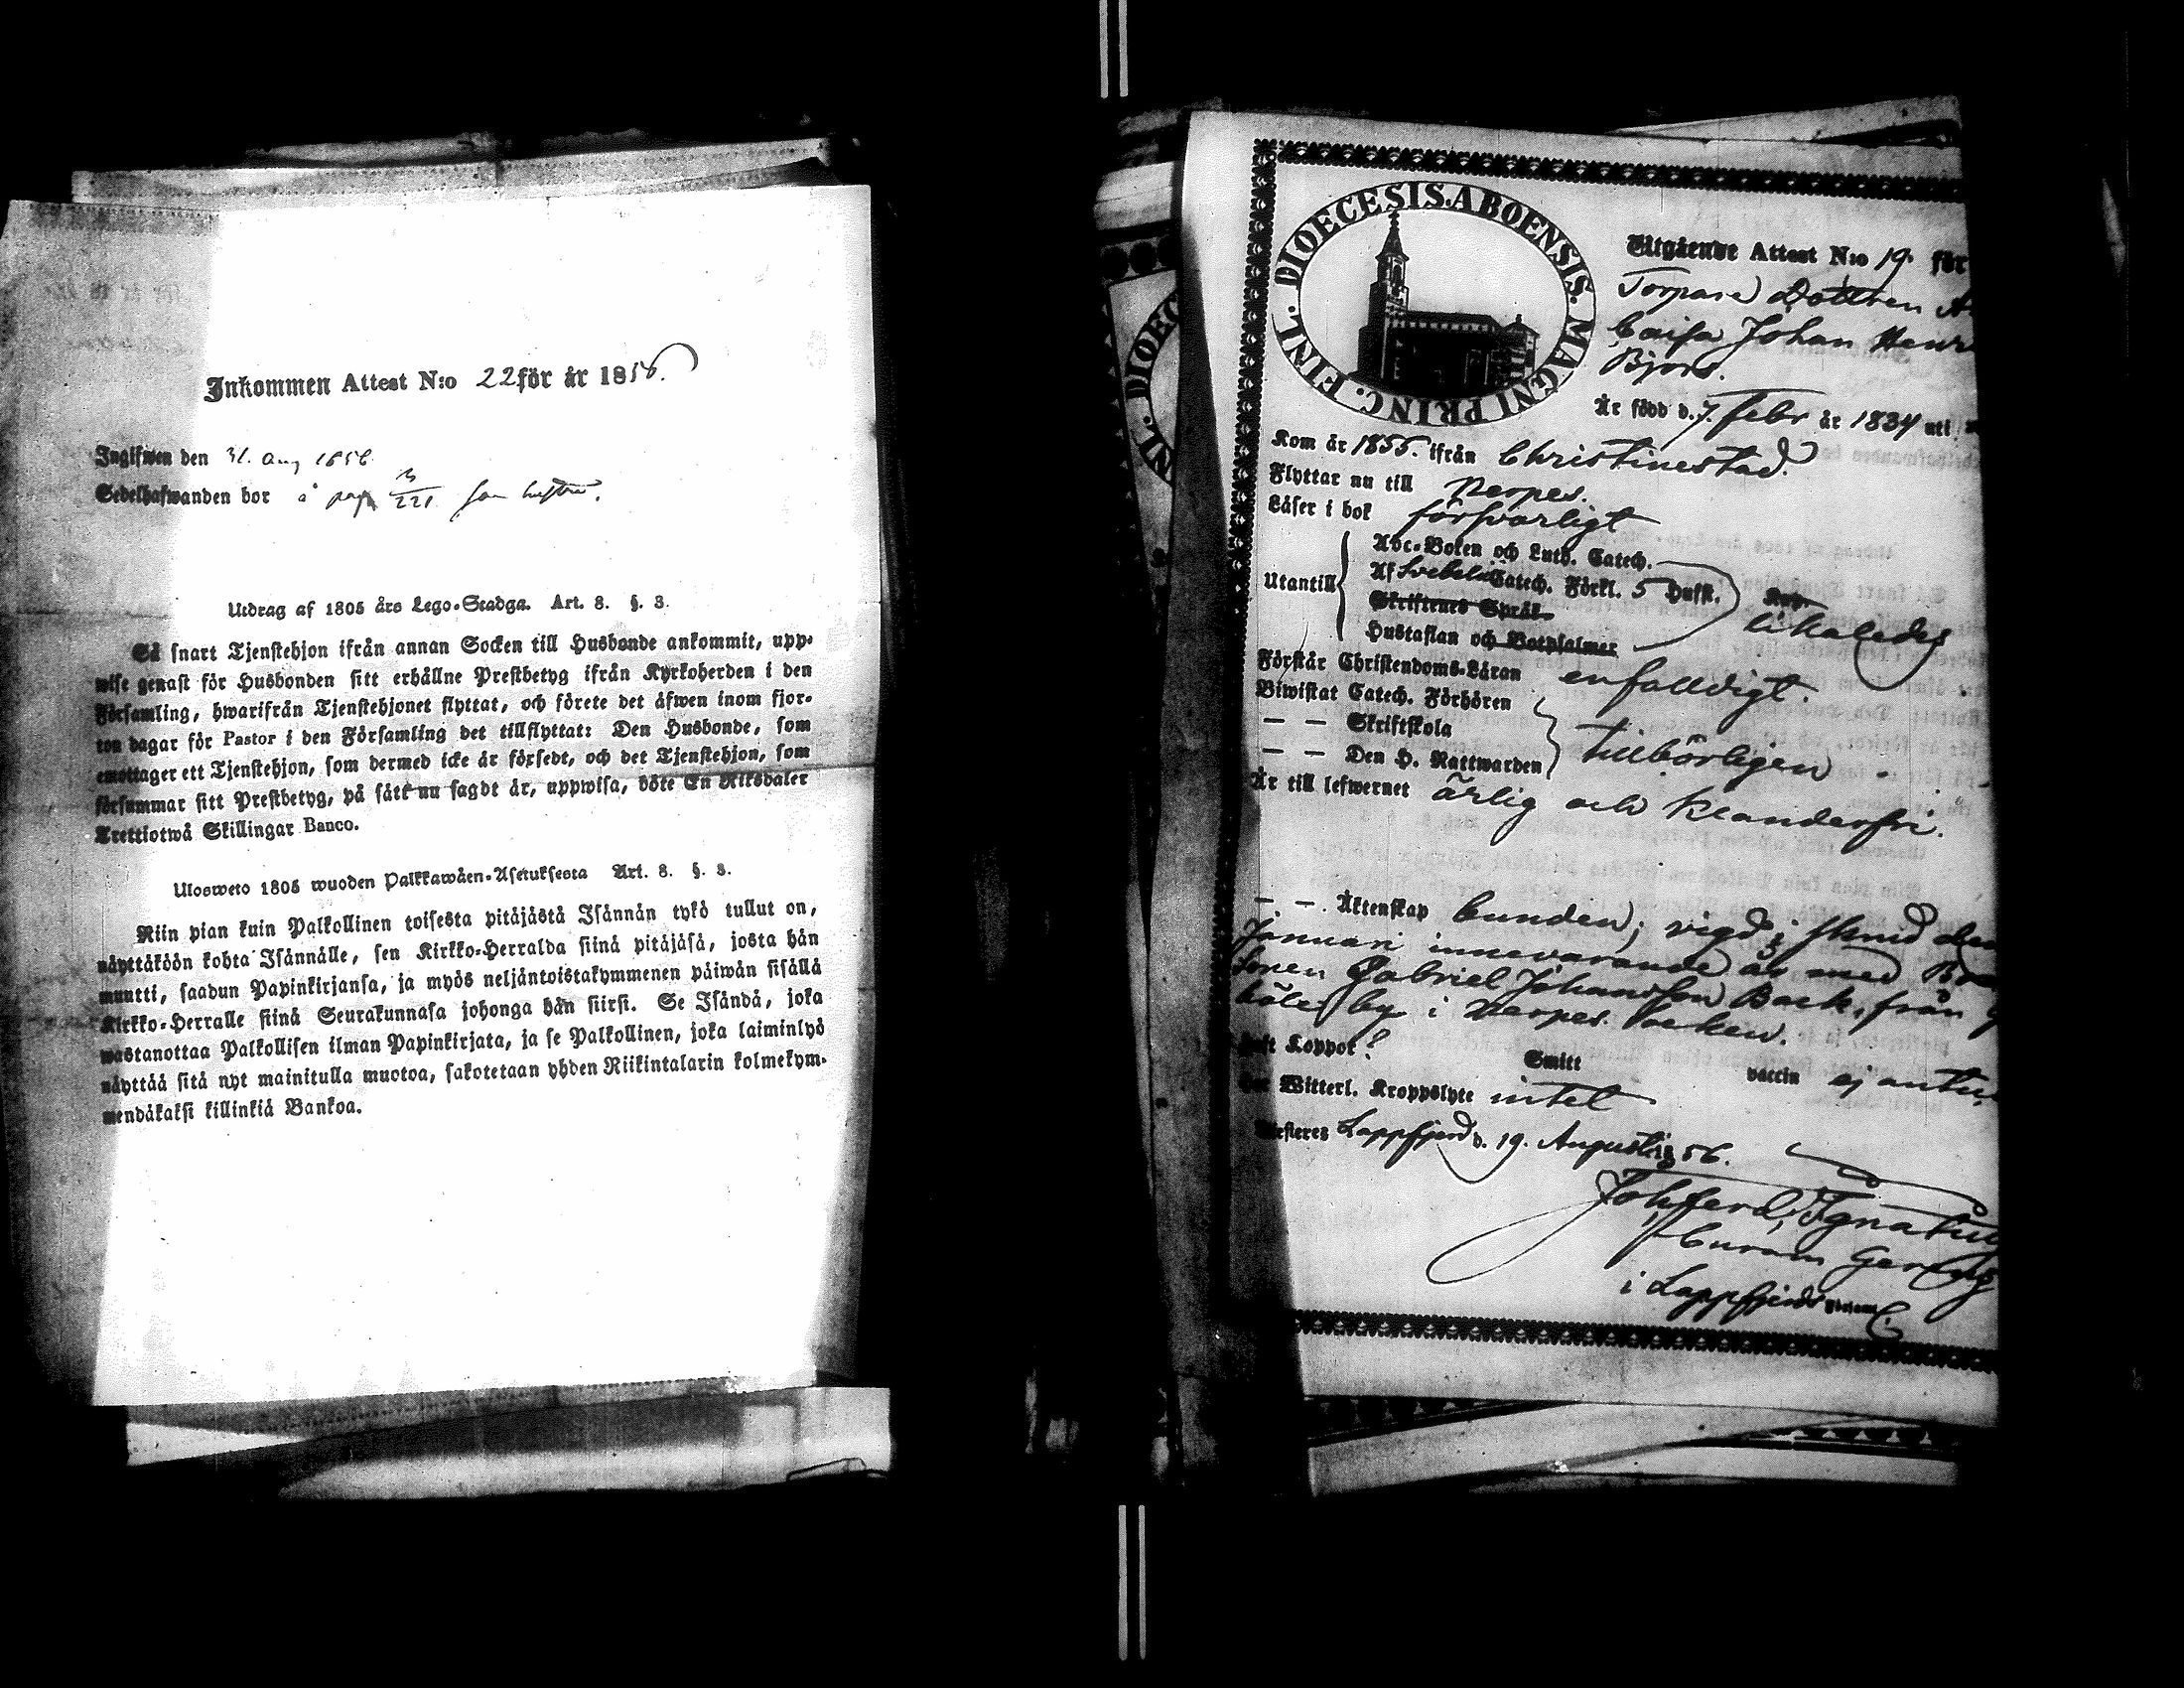 Inkommen Attest N:o 22 för år 1856.
Ingifwen den 31. Aug 1856
Sedelhafwanden bor å pag 221 som hustru.
Utdrag af 1805 års Lego-Stadga. Art. 8. §. 3.
Så snart Tjenstehjon ifrån annan Socken till Husbonde ankommit, upp-
wise genast för Husbonden sitt erhållne Prestbetyg ifrån Kyrkoherden i den
Församling, hwarifrån Tjenstehjonet flyttat, och förete det äfwen inom fjor-
ton dagar för Pastor i den Församling det tillflyttat: Den Husbonde, som
emottager ett Tjenstehjon, som dermed icke är försedt, och det Tjenstehjon, som
försummar sitt Prestbetyg, på sätt nu sagdt är, uppwisa, böte En Riksdaler
Trettiotwå Skillingar Banco.
Ulosweto 1805 wuoden Palkkawäen-Asetuksesta Art. 8. §. 3.
Niin pian kuin Palkollinen toisesta pitäjästä Isännän tykö tullut on,
näyttäköön kohta Isännälle, sen Kirkko-Herralda siinä pitäjäsä, josta hän
muutti, saadun Papinkirjansa, ja myös neljäntoistakymmenen päiwän sisällä
Kirkko-Herralle siinä Seurakunnasa johonga hän siirsi. Se Isändä, joka
wastanottaa Palkollisen ilman Papinkirjata, ja se Palkollinen, joka laiminlyö
näyttää sitä nyt mainitulla muotoa, sakotetaan yhden Riikintalarin kolmekym-
mendäkaksi killinkiä Bankoa.
FINL. DIOECESIS.ABOENSIS. MAGNI PRINC.
Utgående Attest N:o 19. för
Torpare Dottren
Caisa Johan Henr
Björs.
Är född d. 7. Febr år 1834 uti
Kom år 1855. ifrån Christinestad.
Flyttar nu till Nerpes.
Läser i bok försvarligt
Utantill
Abc-Boken och Luth. Catech.
Af Svebelii Catech. Förkl. 5 Hufst.
Skriftenes Språk
Hustaflan och Botpsalmer
likaledes
Förstår Christendoms-Läran enfalldigt.
Biwistat Catech. Förhören
— — Skriftskola
— — Den H. Nattwarden
tillbörligen.
Är till lefwernet ärlig och klanderfri.
— —. Äktenskap bunden; vigd i stånd den
Januari innevarande år med
Sonen Gabriel Johansson Back, från
by i Nerpes Socken.
haft Koppor?
Smitt
vaccin ej
Har Witterl. Kroppslyte intet
Attesteres Lappfjerd d. 19. Augusti 1856.
Joh. Ferd. Ignatius
Curam Ger
i Lappfjerds